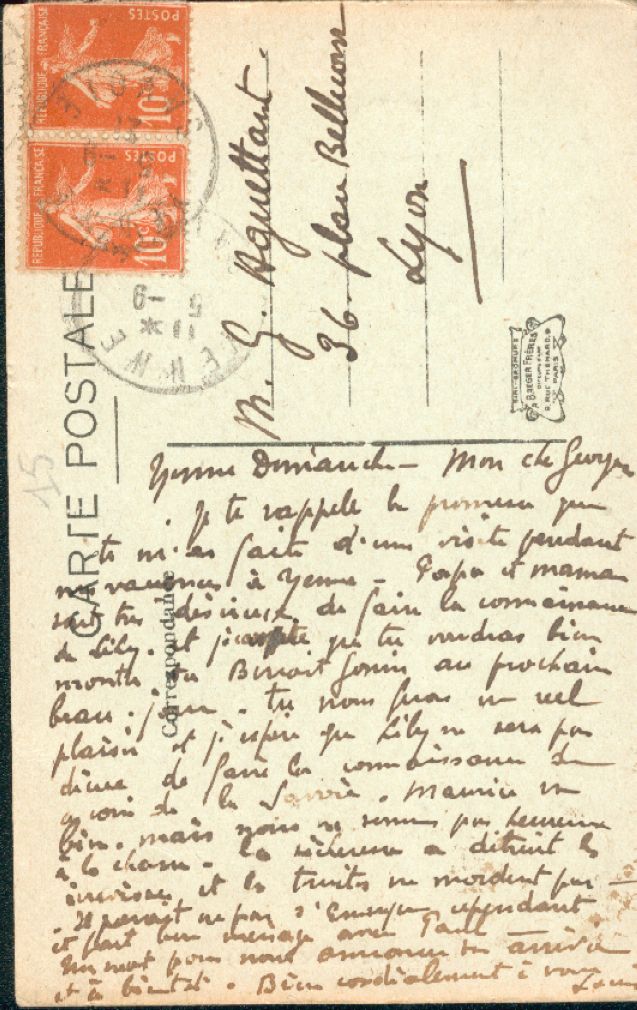 RÉPUBLIQUE FRANÇAISE
POSTES
10c
RÉPUBLIQUE FRANÇAISE
POSTES
10c
YENNE
9-5
* 11
CARTE POSTALE
Correspondance
15
M. G. Aguettant.
36. place Bellecour
Lyon
BROMURE
BAEGER FRÈRES
9, RUE THÉNARD, 9
PARIS
Yenne Dimanche - Mon ch Georges
Je te rappelle la promesse que
tu m'as faite d'une visite pendant
mes vacances à Yenne - Papa et maman
sont très désireux de faire la connaissance
de Lily. et je compte que tu voudras bien
monter Benoit Gonin au prochain
beau jour. tu nous feras un réel
plaisir et j'espère que Lily ne sera pas
déçue de faire la connaissance du
coin de la Savoie. Maurice va
bien. mais nous ne sommes pas heureux
à la chasse. la sécheresse a détruit les
et les truites ne mordent pas -
Il paraît ne pas s'ennuyer cependant
et fait bon ménage avec Paul
Un mot pour nous annoncer ton arrivée
et à bientôt. Bien cordialement à vous
Louis